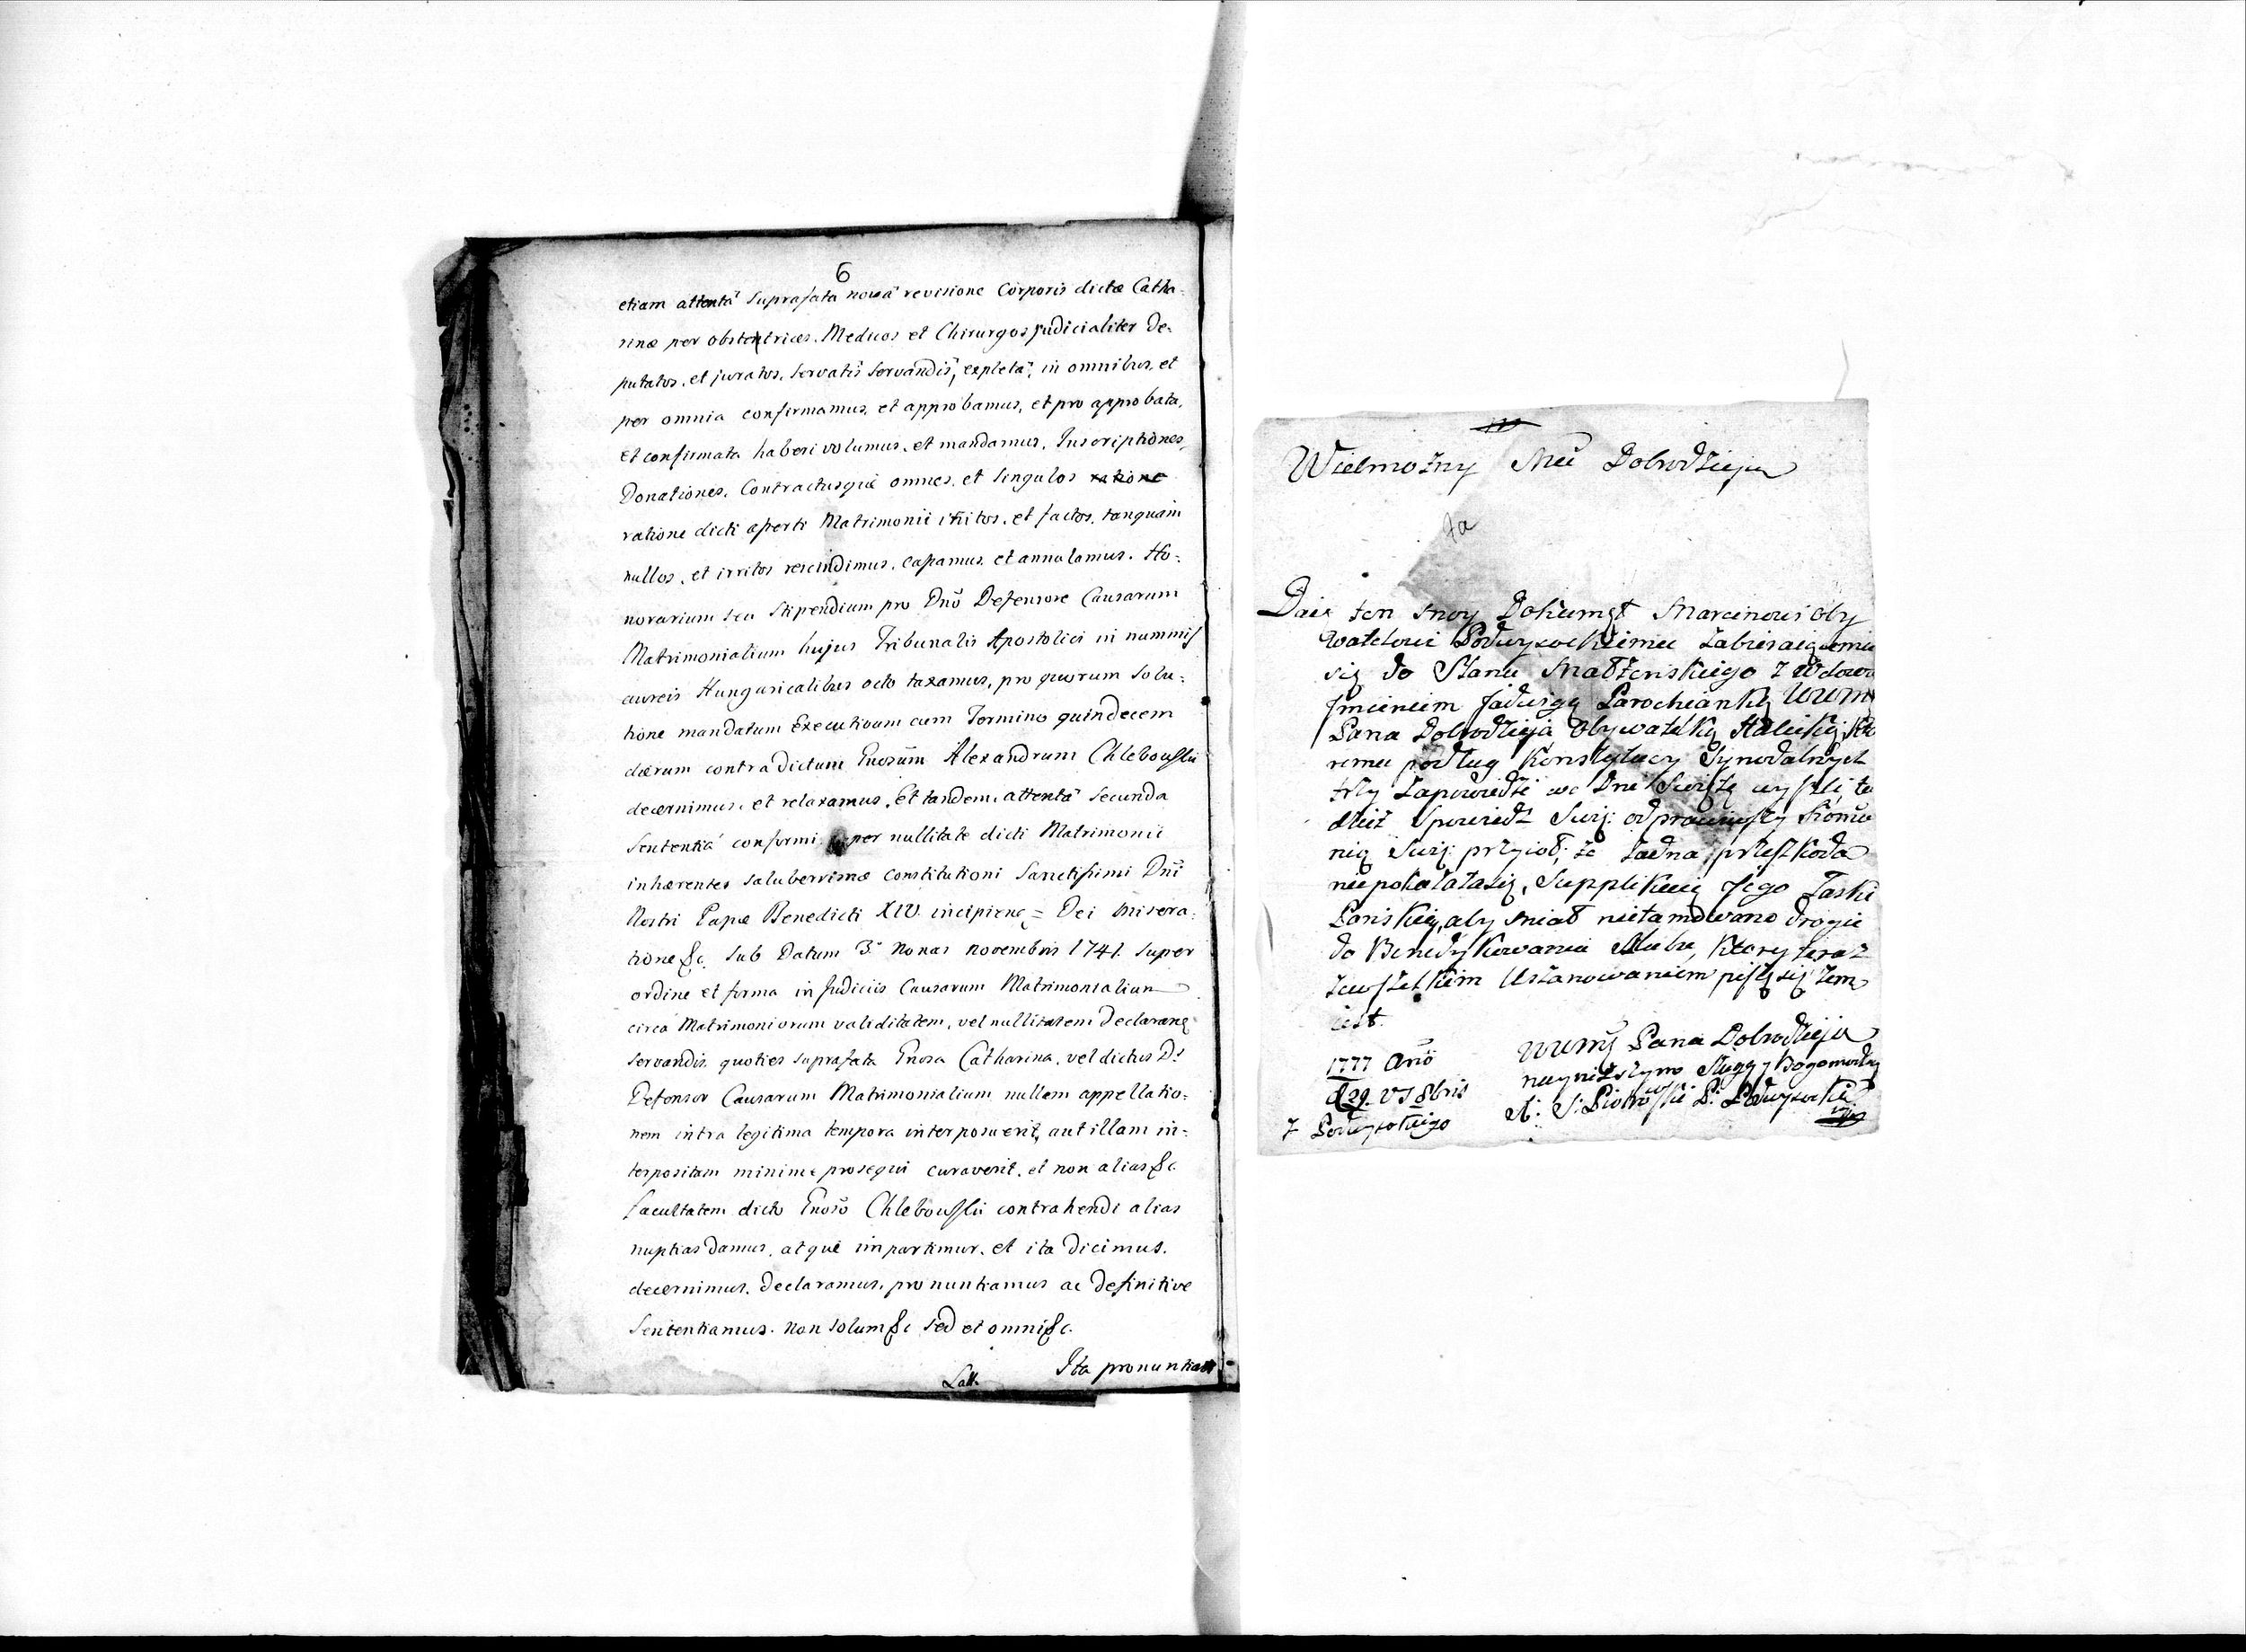 6
etiam attentâ suprafata novâ revisione Corporis dictæ Catha-
rinæ per obstetrices. Medicos et Chirurgos judicialiter De-
putatos, et juratos, servatis servandis, expletâ, in omnibus, et
per omnia confirmamus, et approbamus, et pro approbata,
et confirmata haberi volumus, et mandamus. Inscriptiones,
Donationes, Contractusque omnes, et singulos ratione
ratione dicti asserti Matrimonii initos, et factos, tanquam
nullos, et irritos rescindimus, cassamus, et annulamus. Ho=
norarium seu Stipendium pro Dnō Defensore Causarum
Matrimonialium hujus Tribunalis Apostolici in nummis
aureis Hungaricalibus octo taxamus, pro quorum solu=
tione mandatum Executivum cum Termino quindecem
dierum contra dictum Gnosum Alexandrum Chlebowski
decernimus, et relaxamus. Et tandem, attentâ secunda
sententiâ conformi super nullitate dicti Matrimonii
inhærentes saluberrimæ constitutioni Sanctissimi Dnī
Nostri Papæ Benedicti XIV. incipien = Dei misera=
tione &c. sub Datum 3° Nonas Novembris 1741. super
ordine et forma in Judiciis Causarum Matrimonialium
circa Matrimoniorum validitatem, vel nullitatem Declaran
servandis, quoties suprafata Gnosa Catharina, vel dictus Ds
Defensor Causarum Matrimonialium nullam appellatio=
nem intra legitima tempora interposuerit, aut illam in=
terpositam minime prosequi curaverit, et non alias &c
facultatem dicto Gnoso Chlebowski contrahendi alias
nuptias damus, atque impartimur, et ita Dicimus,
decernimus, Declaramus, pronuntiamus ac Definitive
Sententiamus. Non solum &c sed et omni &c.
Ita pronuntiavi
Wielmozny Mci Dobrodzieju
Ja
Daię ten moy Dokumęt Marcinowi oby
watelowi Podwysockiemu zabieraiącemu
się do Stanu Małżenskiego z Wdowa
Jmieniem Jadwigą Parochianką WWM
Pana Dobrodzieja Obywatelką Halicką, Kto
remu podług Konstytucy Synodalnych
trzy Zapowiedzi we Dni Swiętę wyszli, ta
dziez Spowiedz Swię: odprawiwszy Komu
nię Swię: przyioł, ze zadna przeszkoda
niepokazałasię, Supplikuię Jego Łaski
Panskiey, aby miał nietamowano drogie
do Benedykowania Slubu, Ktory teraz
zewszelkim Uszanowaniem piszę się zem
iest.
WWMś Pana Dobrodzieja
1777 Anō
nayniższym Sługą y Bogomodlcą
d 29. VS 8bris
X: S: Piotrowski P: Podwysocki
z Podwysokiego